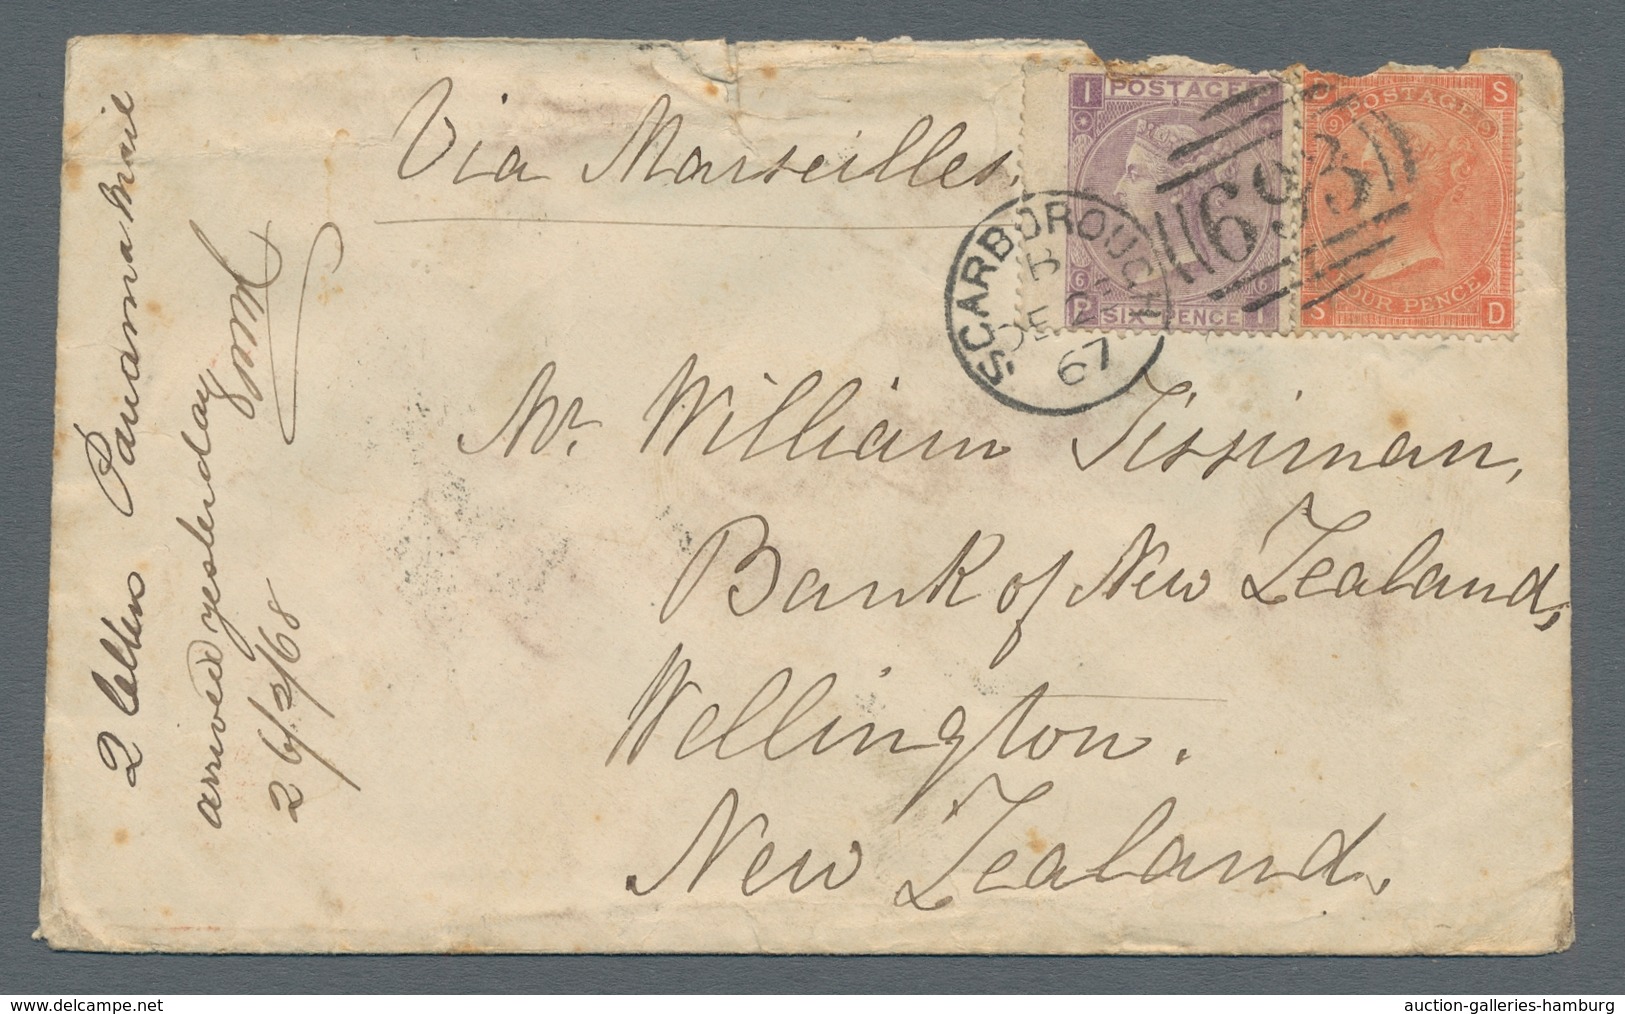 Via Marseilles.
I POSTAGE
6 6
P SIX PENCE I
D POSTAGE S
9 9
S FOUR PENCE D
693
SCARBOROUGH
B
DE 2
67
Mr. William Tissiman,
Bank of New Zealand,
Wellington.
New Zealand.
2 letters Panama Mail
arrived yesterday
26/2/68
www.delcampe.net
auction-galleries-hamburg